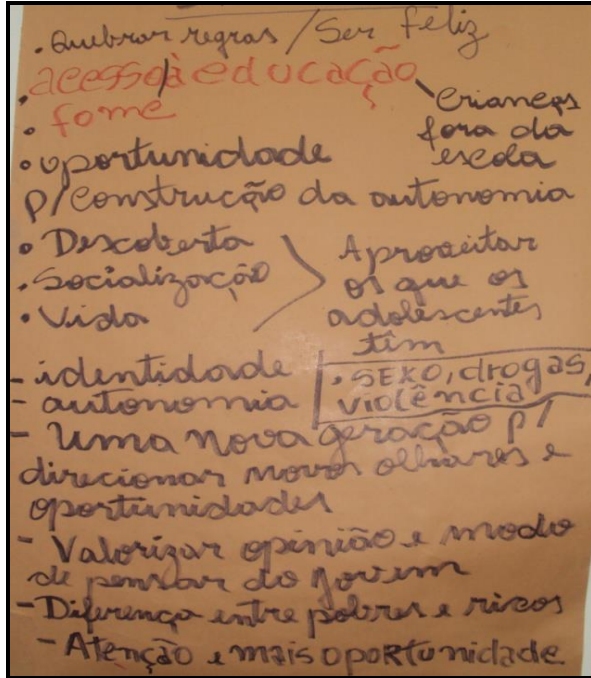 . Quebrar regras / Ser feliz
. acesso à educação
. fome
Crianças
fora da
escola
. oportunidade
p/ construção da autonomia
. Descoberta
. Socialização
. Vida
Aproveitar
os que os
adolescentes
têm
- identidade
- autonomia
. SEXO, drogas,
violência
- Uma nova geração p/
direcionar novos olhares e
oportunidades
- Valorizar opinião e modo
de pensar do jovem
- Diferença entre pobres e ricos
- Atenção e mais oportunidade